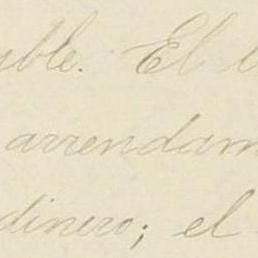 ible. El
arrendam
dinero; el